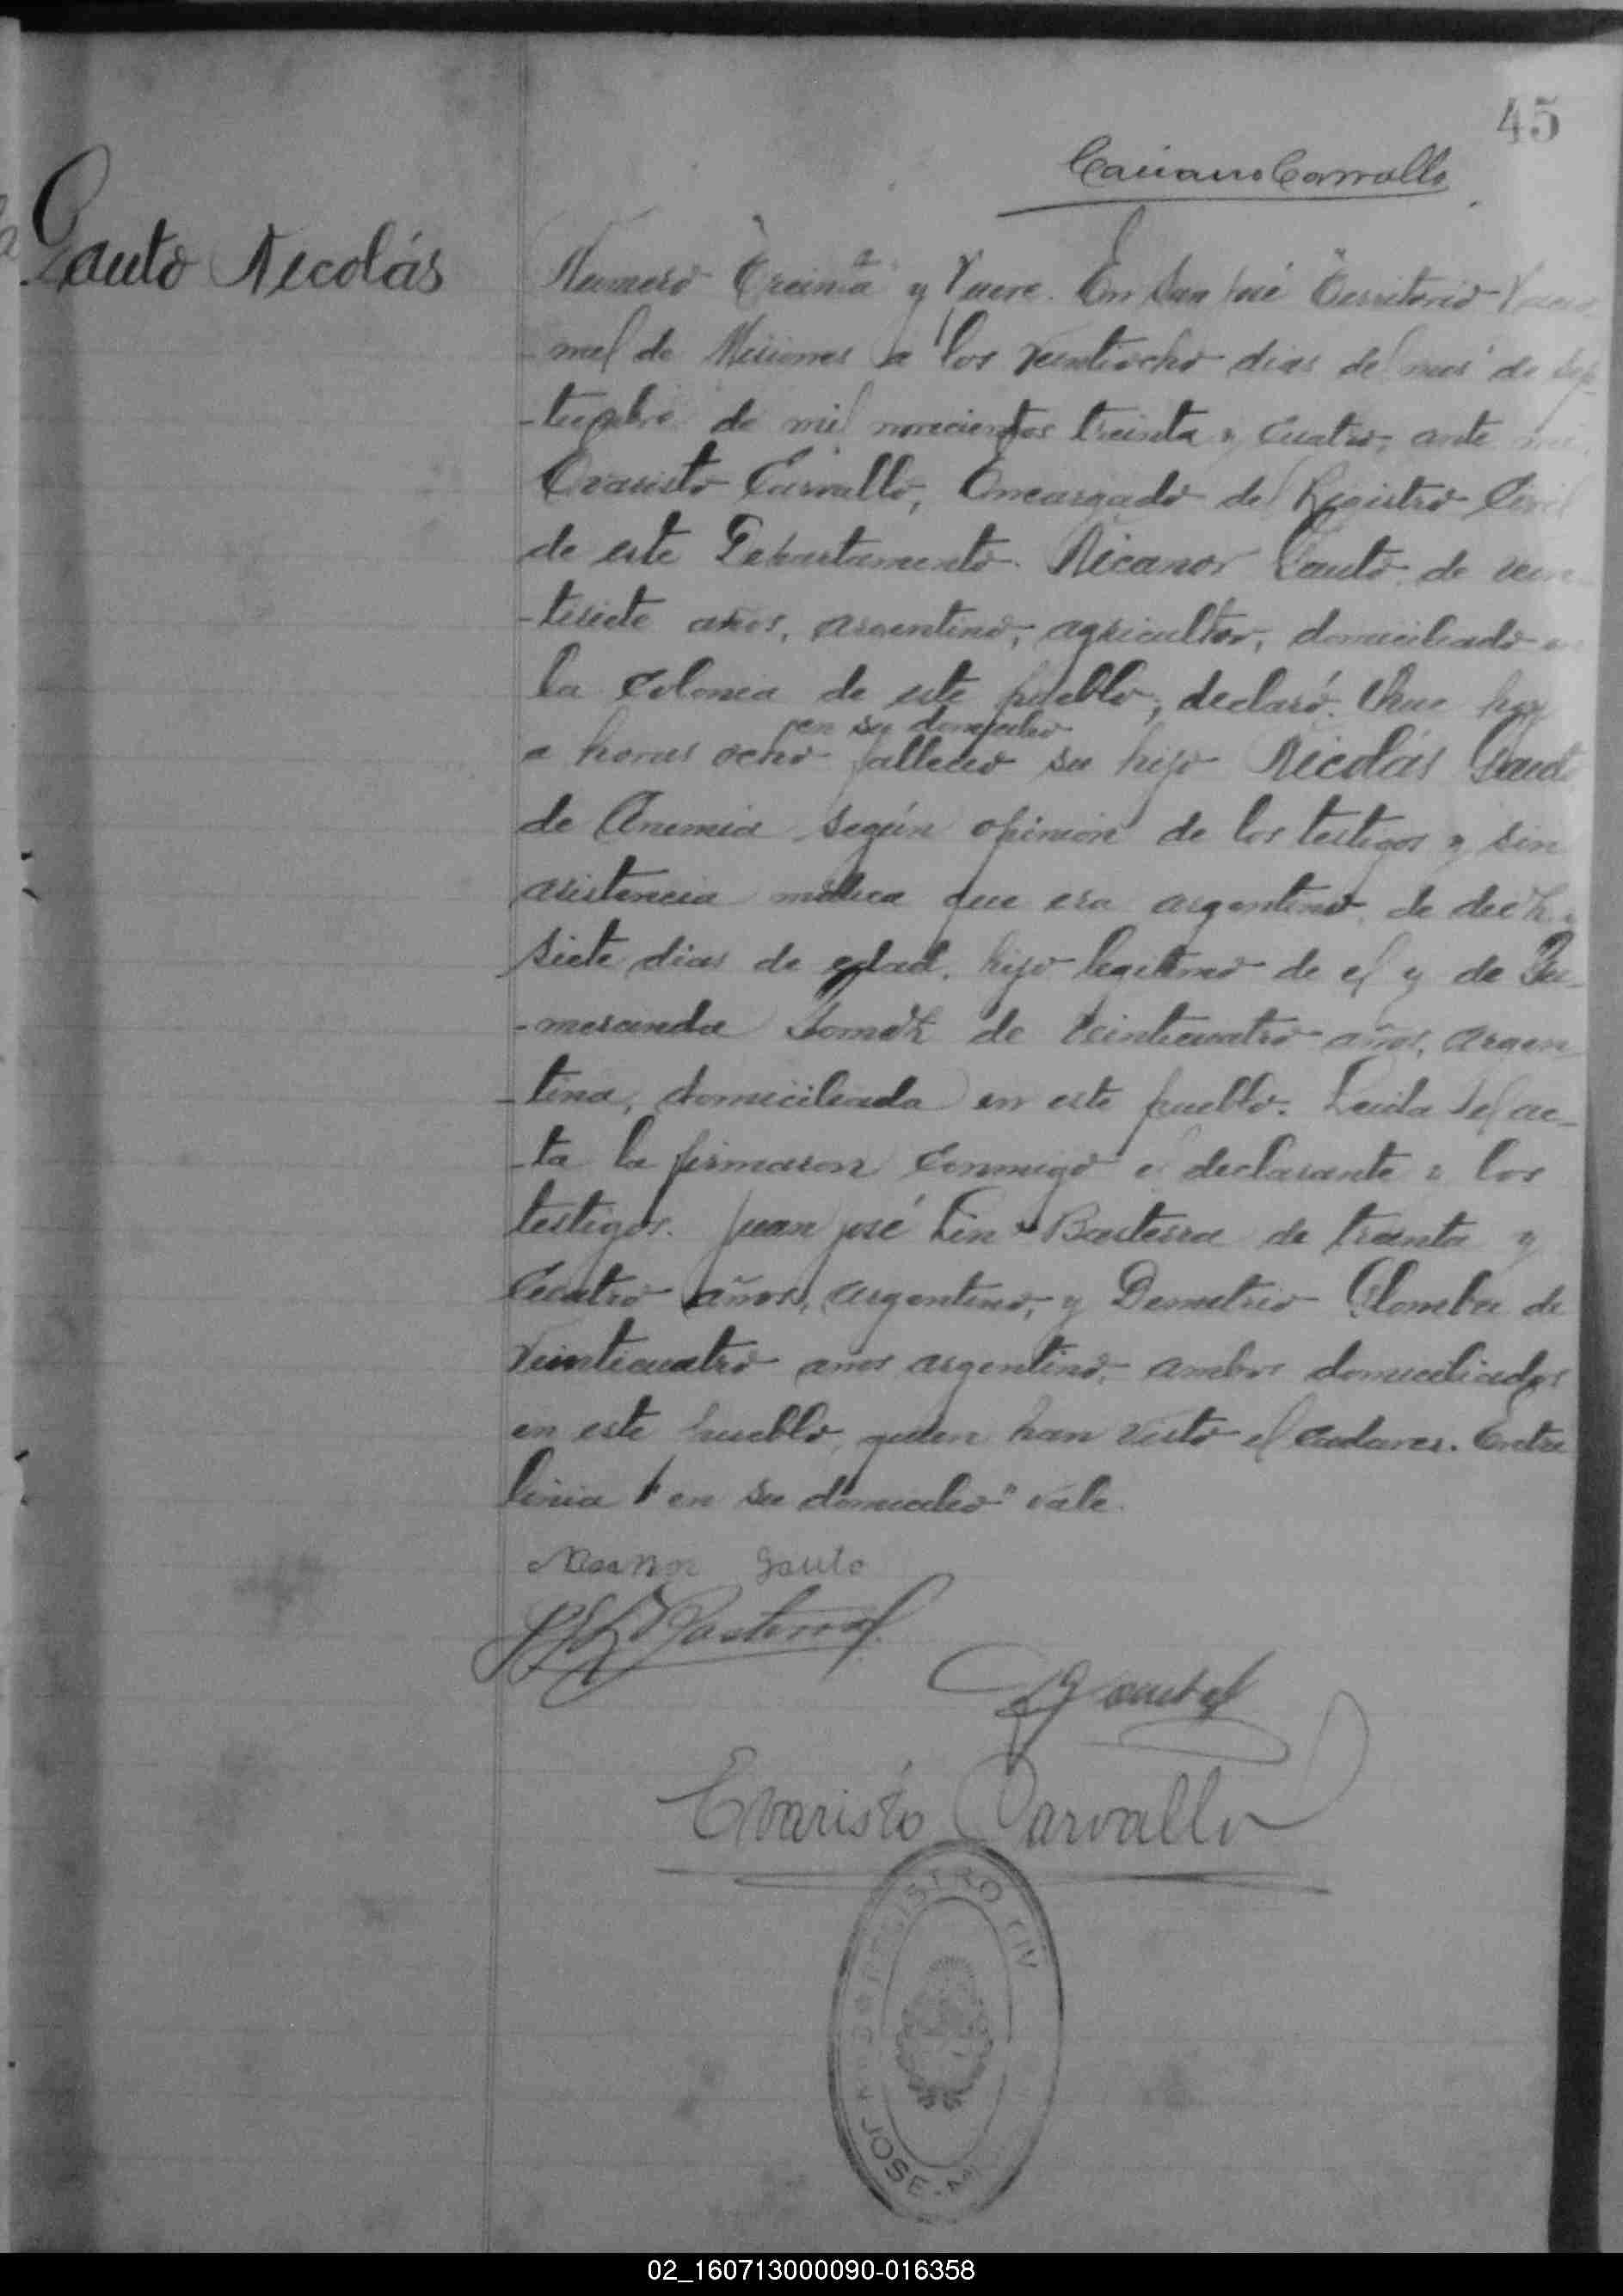 45
Carvallo
Gauto Nicolás
Numero Treinta y Nueve. En San José Territorio Nacio
nal de Misiones a los veintiocho dias del mes de Sep
-tiembre de mil novecientos treinta y cuatro, ante mi
Evaristo Carvallo, Encargado del Registro Civil
de este Departamento. Nicanor Gauto, de vein
-tisiete años, argentino, agricultor, domiciliado en
la Colonia de este pueblo, declaró. Que hoy
en su domicilio
a horas ocho falleció su hijo Nicolás Gauto
de Anemia según opinión de los testigos y sin
asistencia médica que era argentino, de diez y
siete dias de edad, hijo legitimo de el y de Gu-
-mercinda Gomez de veinticuatro años, argen
-tina, domiciliada en este pueblo. Leida el ac-
-ta la firmaron conmigo el declarante y los
testigos. Juan José Basterra de treinta y
Cuatro años, argentino, y Demetrio de
Veinticuatro anos argentino, ambos domiciliados
en este pueblo, quien han visto el cadaver. Entre
linia "en su domicilio" vale.
Nicanor Gauto
Basterra
Evaristo Carvallo
REGISTRO CIV
JOSE
02_160713000090-016358